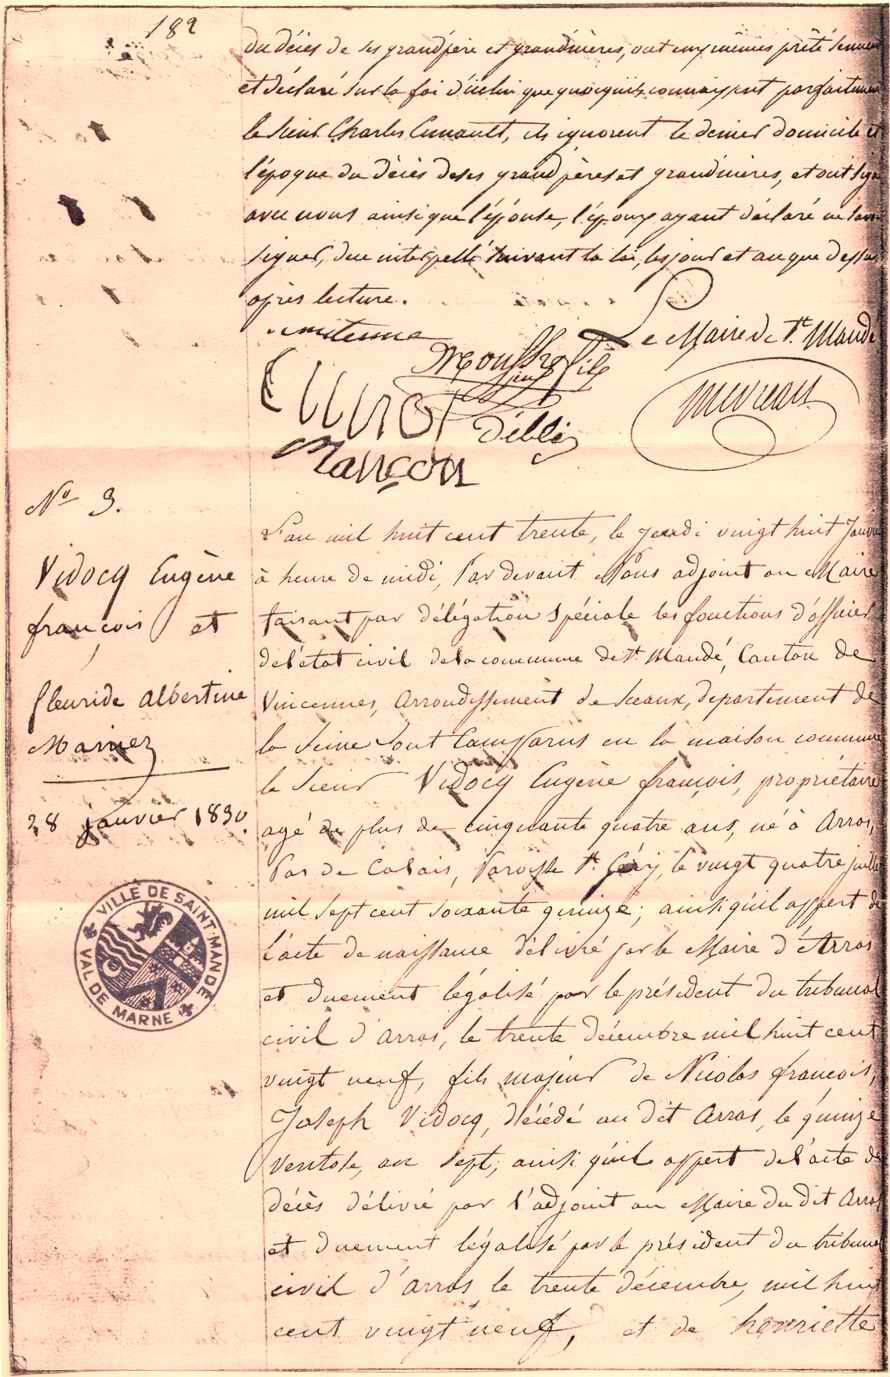 182
du décès de ses grandpère et grandmères, ont eux mêmes prêté serment
et déclaré sur la foi d'icelui que quoiqu'ils connaissent parfaitement
le sieur Charles, ils ignorent le dernier domicile et
l'époque du décès de ses grandpères et grandmères, et ont signé
avec nous ainsi que l'épouse, l'époux ayant déclaré ne savoir
signer, de ce interpellé suivant la loi, les jour et an que dessus
après lecture.
Le Maire de St. Mandé
fils
Mançon
No 3.
Vidocq Eugène
françois et
fleuride albertine
Maniez
28 janvier 1830.
VILLE DE SAINT-MANDÉ
VAL DE MARNE
L'an mil huit cent trente, le jeudi vingt huit Janvier
à heure de midi, Par devant Nous adjoint au Maire
faisant par délégation spéciale les fonctions d'officier
de l'état civil de la commune de St. Mandé, Canton de
Vincennes, arrondissement de Sceaux, departement de
la Seine sont comparus en la maison commune
le Sieur Vidocq Eugène françois, propriétaire
agé de plus de cinquante quatre ans, né à Arras,
Pas de Calais, Paroisse St. Géry, le vingt quatre juillet
mil sept cent soixante quinze; ainsi qu'il appert de
l'acte de naissance délivré par le Maire d'Arras
et duement légalisé par le président du tribunal
civil d'arras, le trente décembre mil huit cent
vingt neuf, fils majeur de Nicolas françois,
Joseph Vidocq, décédé au dit Arras, le quinze
Ventose, an Sept; ainsi qu'il appert de l'acte de
décès délivré par l'adjoint au Maire du dit Arras
et duement légalisé par le président du tribunal
civil d'arras le trente décembre, mil huit
cent vingt neuf, et de henriette